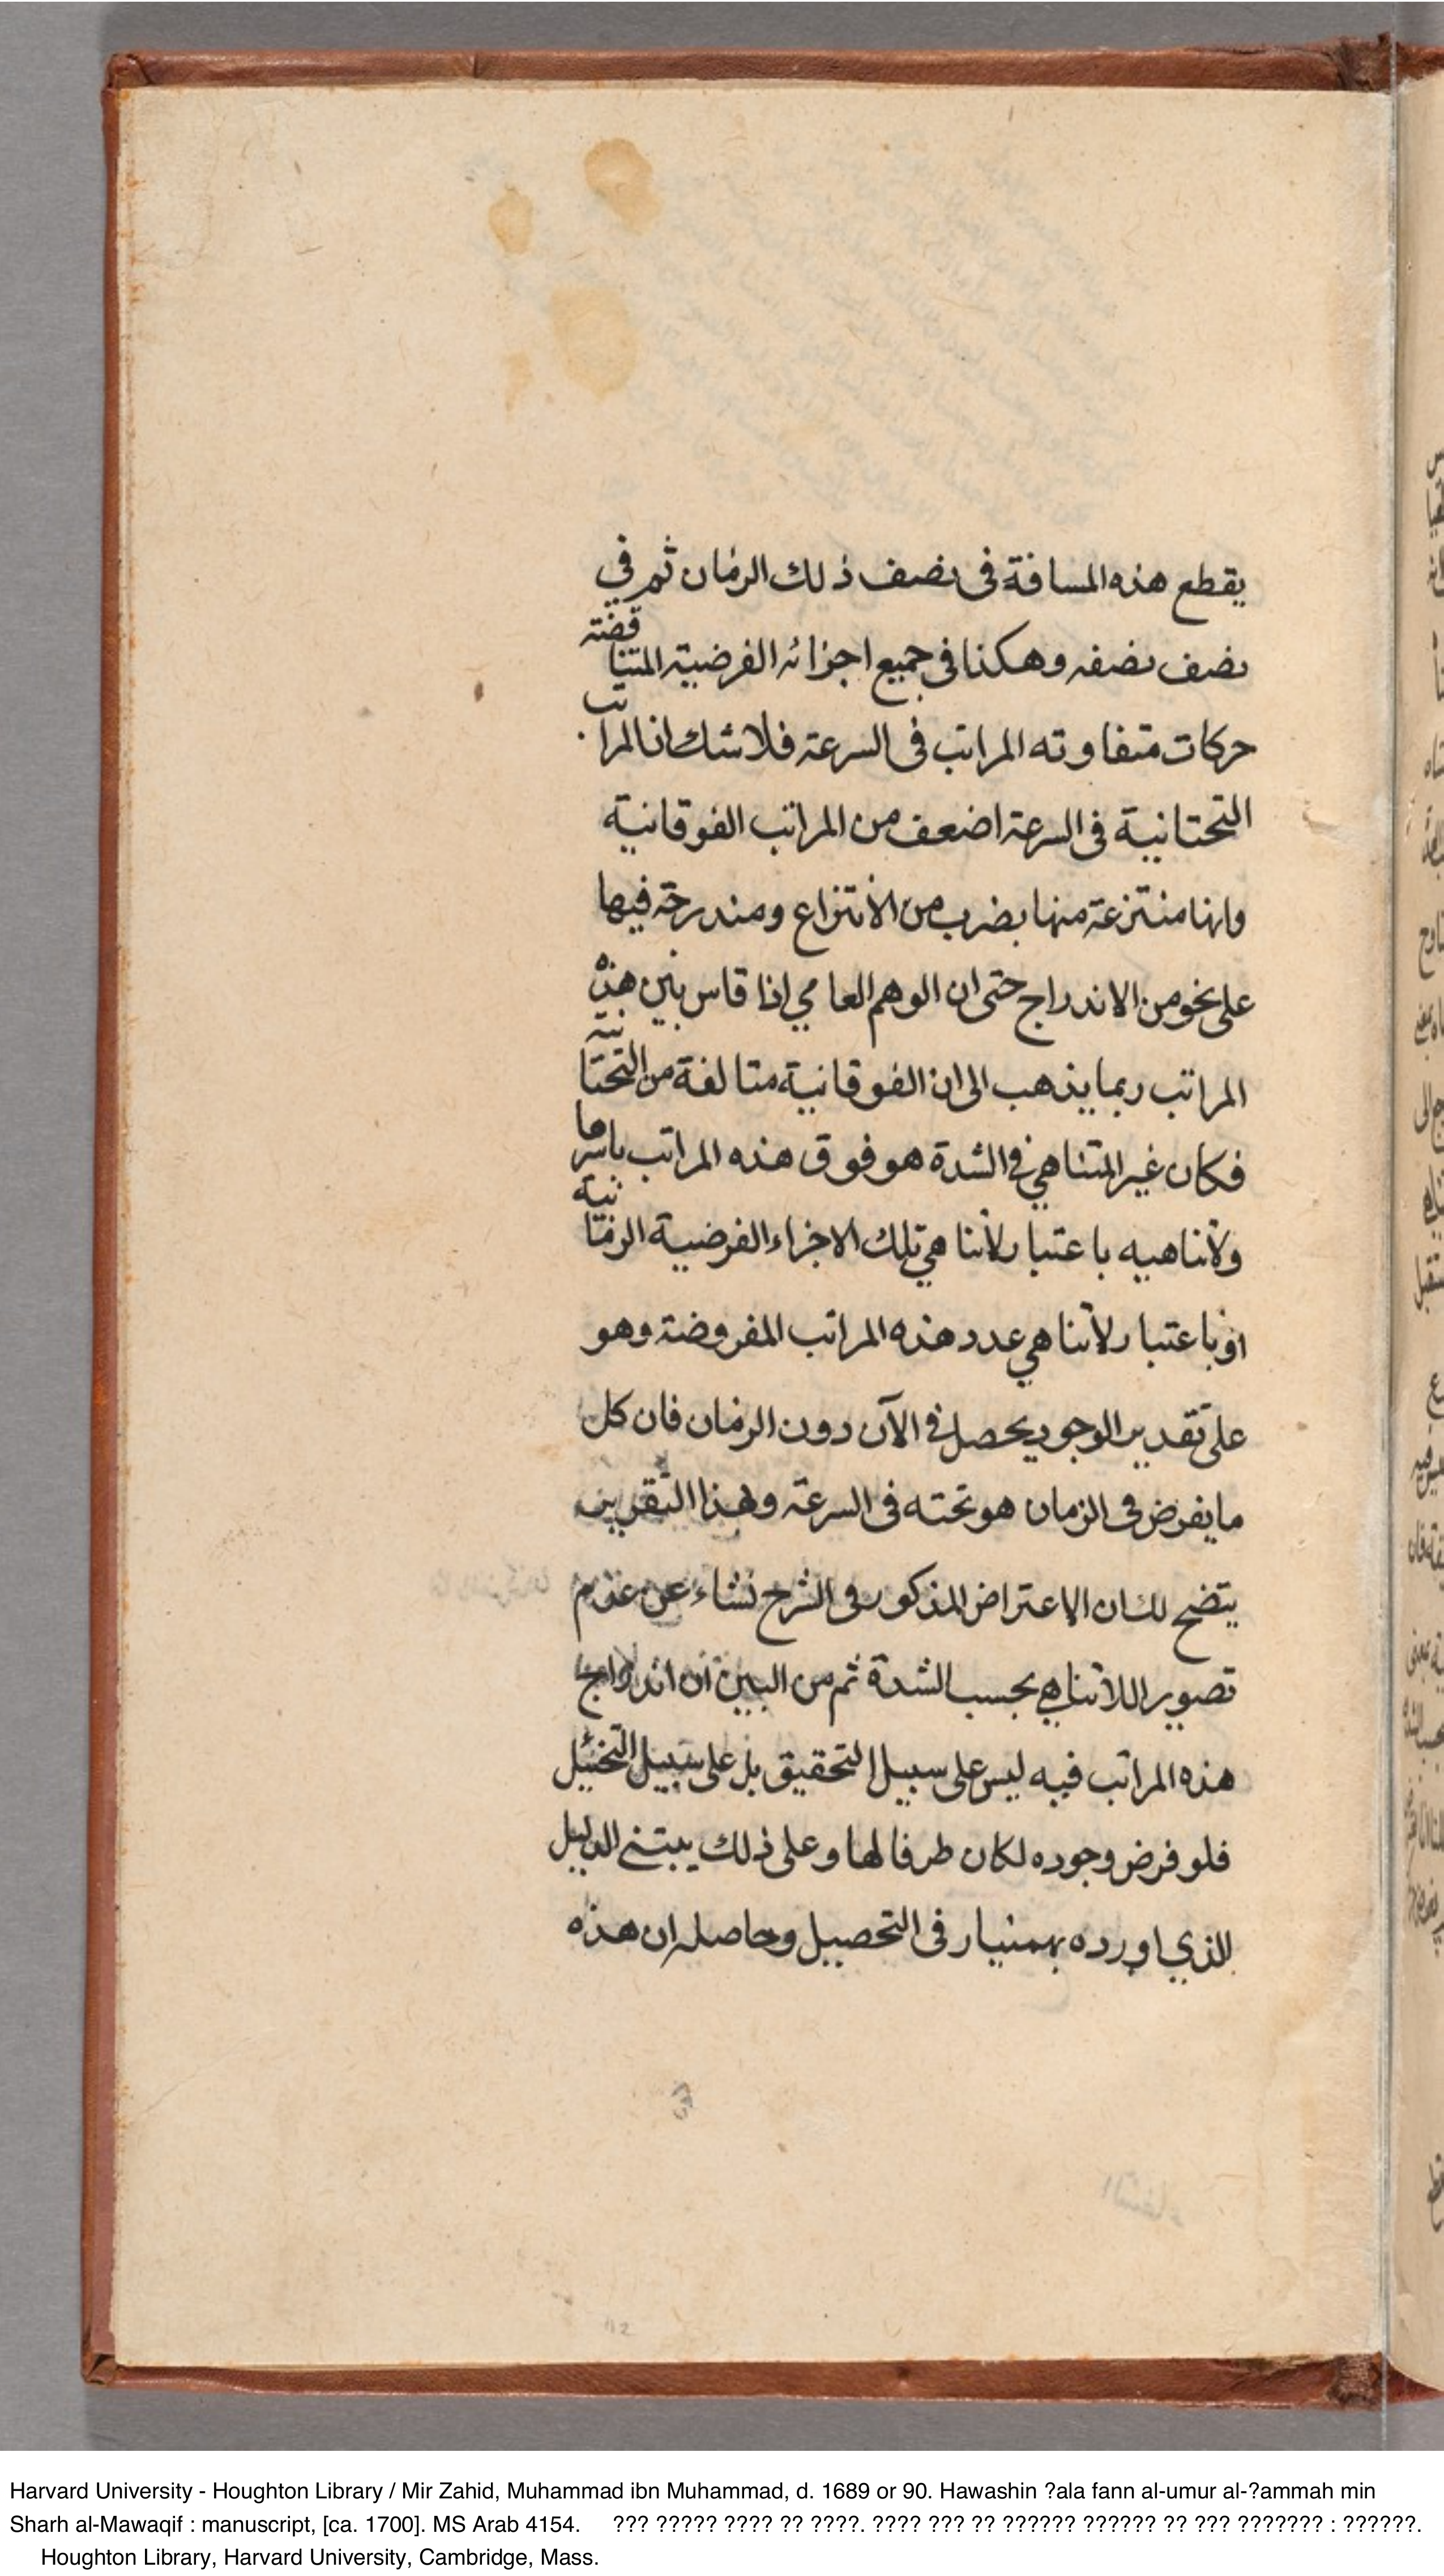 يقطع هذه المسافة فى نصف ذلك الزمان ثم في
نصف نصفه وهكذا فى جميع اجزائه الفرضية المتناقضة
حركات متفاوته المراتب فى السرعة فلا شك ان المراتب
التحتانية فى السرعة اضعف من المراتب الفوقانية
وانها منتزعة منها بضرب من الانتزاع ومندرجة فيها
على نحو من الاندراج حتى ان الوهم العامي اذا قاس بين هذه
المراتب ربما يذهب الى ان الفوقانية متالفة من التحتانية
فكان غير المتناهي في الشدة هو فوق هذه المراتب باسرها
ولاتناهيه باعتبار لاتناهي تلك الاجزاء الفرضية الزمانية
او باعتبار لاتناهي عدد هذه المراتب المفروضة وهو
على تقدير الوجود يحصل في الآن دون الزمان فان كل
ما يفرض فى الزمان هو تحته فى السرعة وبهذا التقرير
يتضح لك ان الاعتراض المذكور فى الشرح نشاء عن عدم
تصوير اللاتناهي بحسب الشدة ثم من البين ان اندراج
هذه المراتب فيه ليس على سبيل التحقيق بل على سبيل التخييل
فلو فرض وجوده لكان طرفا لها وعلى ذلك يبتنى الدليل
الذي اورده بهمنيار فى التحصيل وحاصله ان هذه
112
Harvard University - Houghton Library / Mir Zahid, Muhammad ibn Muhammad, d. 1689 or 90. Hawashin ?ala fann al-umur al-?ammah min
Sharh al-Mawaqif : manuscript, [ca. 1700]. MS Arab 4154. ??? ????? ???? ?? ????. ???? ??? ?? ?????? ?????? ?? ??? ??????? : ??????.
Houghton Library, Harvard University, Cambridge, Mass.